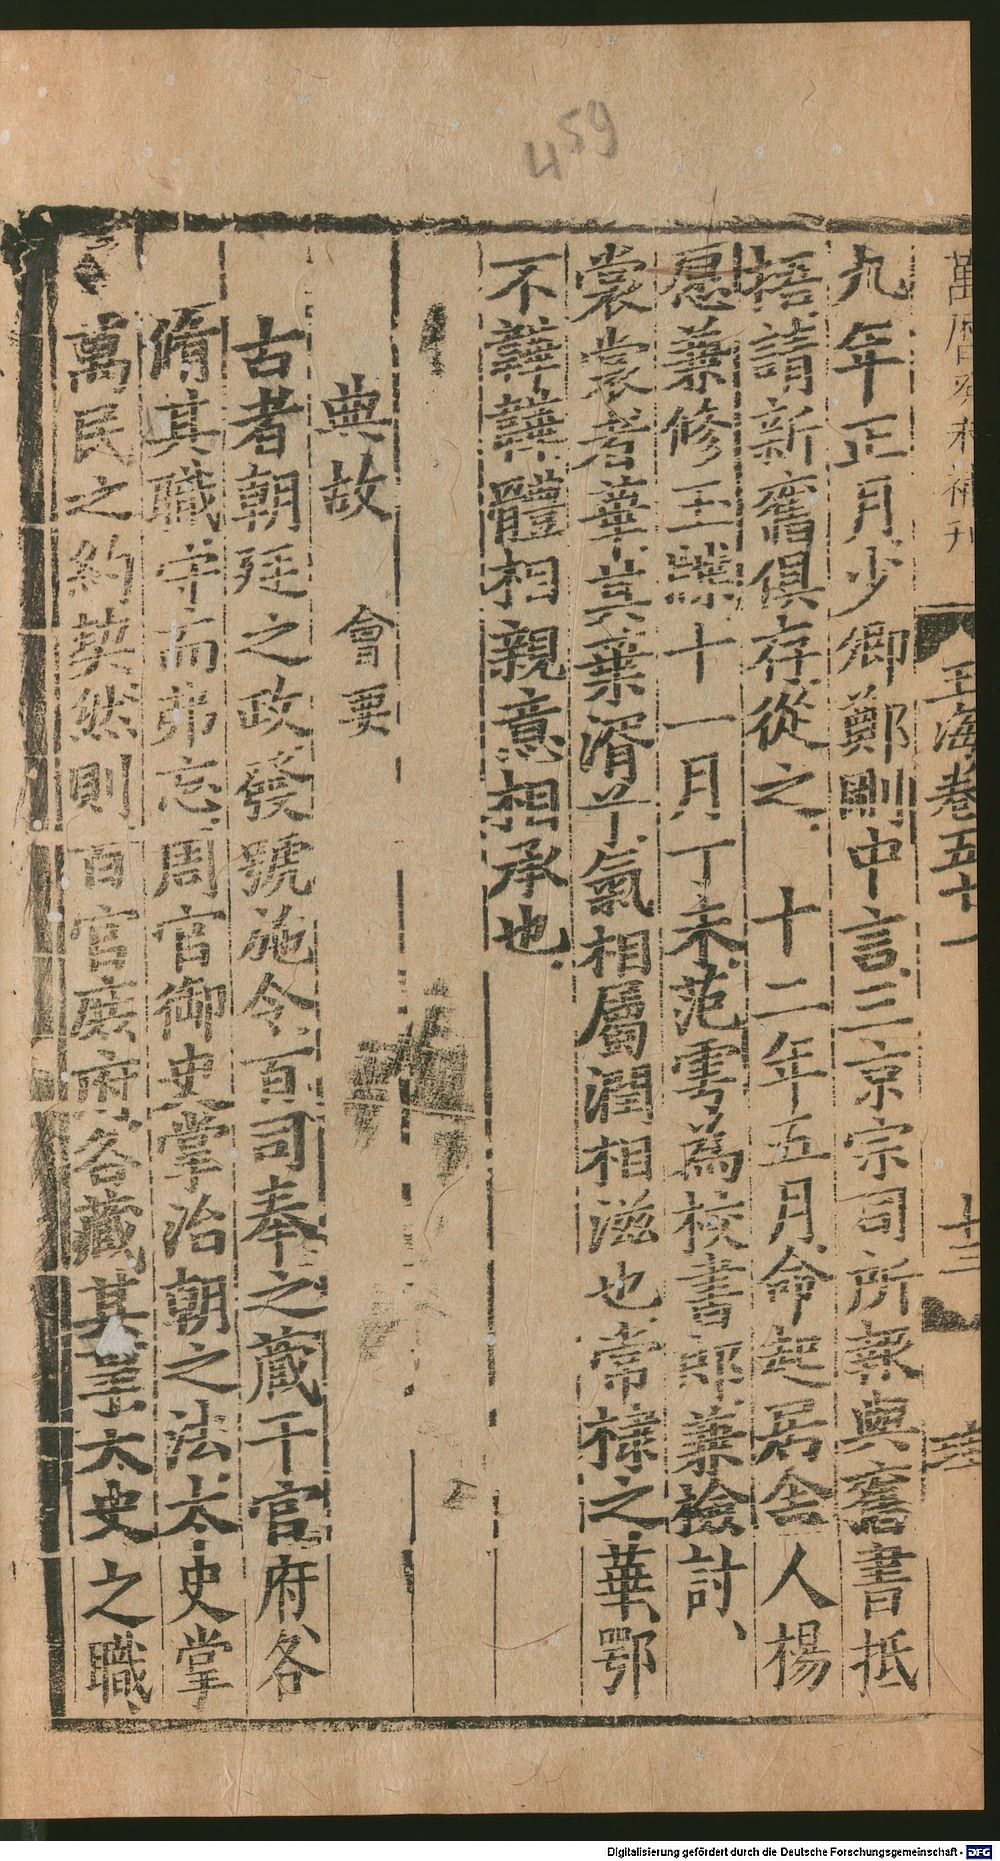 459
萬曆癸未補刊
玉海卷五十一
十三
九年正月少卿鄭則中言三京宗司所報與舊書抵
捂請新舊俱存從之 十二年五月命起居舍人楊
愿兼修玉牒十一月丁未范雩爲校書郎兼檢討
裳裳者華其葉湑兮氣相屬潤相滋也常棣之華鄂
不韡韡體相親意相承也
典故 會要
古者朝廷之政發號施令百司奉之藏于官府各
脩其職守而弗忘周官御史掌治朝之法太史掌
萬民之約契然則百官庶府各藏其事太史之職
Digitalisierung gefördert durch die Deutsche Forschungsgemeinschaft - DFG